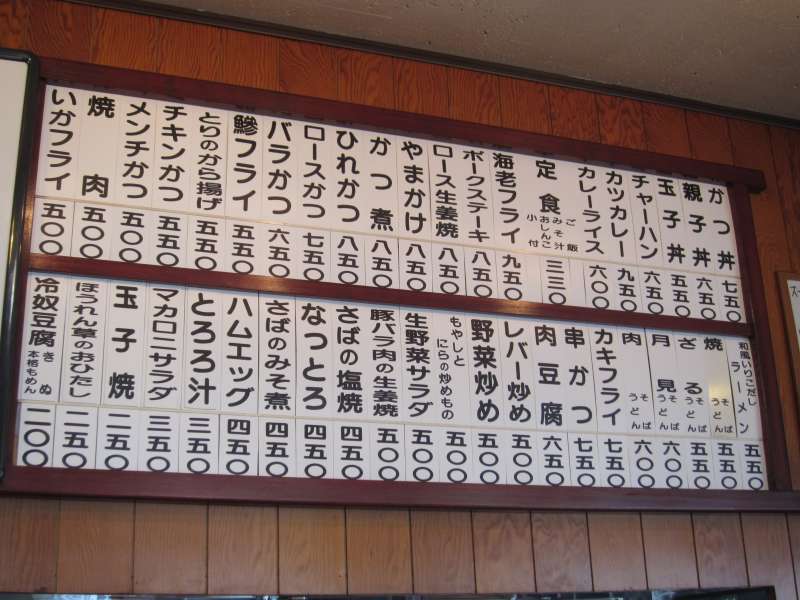 かつ丼 七五〇
親子丼 六五〇
玉子丼 五五〇
チャーハン 六五〇
カツカレー 九五〇
カレーライス 六〇〇
定食 ご飯 みそ汁 おしんこ 小付 三三〇
海老フライ 九五〇
ポークステーキ 八五〇
ロース生姜焼 八五〇
やまかけ 八五〇
かつ煮 八五〇
ひれかつ 八五〇
ロースかつ 七五〇
バラかつ 六五〇
鰺フライ 五五〇
とりのから揚げ 五五〇
チキンかつ 五五〇
メンチかつ 五〇〇
焼肉 五〇〇
いかフライ 五〇〇
和風いりこだし ラーメン 五五〇
焼 そば うどん 五五〇
ざる そば うどん 五五〇
月見 そば うどん 六〇〇
肉 そば うどん 六〇〇
カキフライ 七五〇
串かつ 七五〇
肉豆腐 六五〇
レバー炒め 五五〇
野菜炒め 五〇〇
もやしと にらの炒めもの 五〇〇
生野菜サラダ 五〇〇
豚バラ肉の生姜焼 五〇〇
さばの塩焼 四五〇
なっとろ 四五〇
さばのみそ煮 四五〇
ハムエッグ 四五〇
とろろ汁 三五〇
マカロニサラダ 三五〇
玉子焼 二五〇
ほうれん草のおひたし 二五〇
冷奴豆腐 きぬ 本格もめん 二〇〇